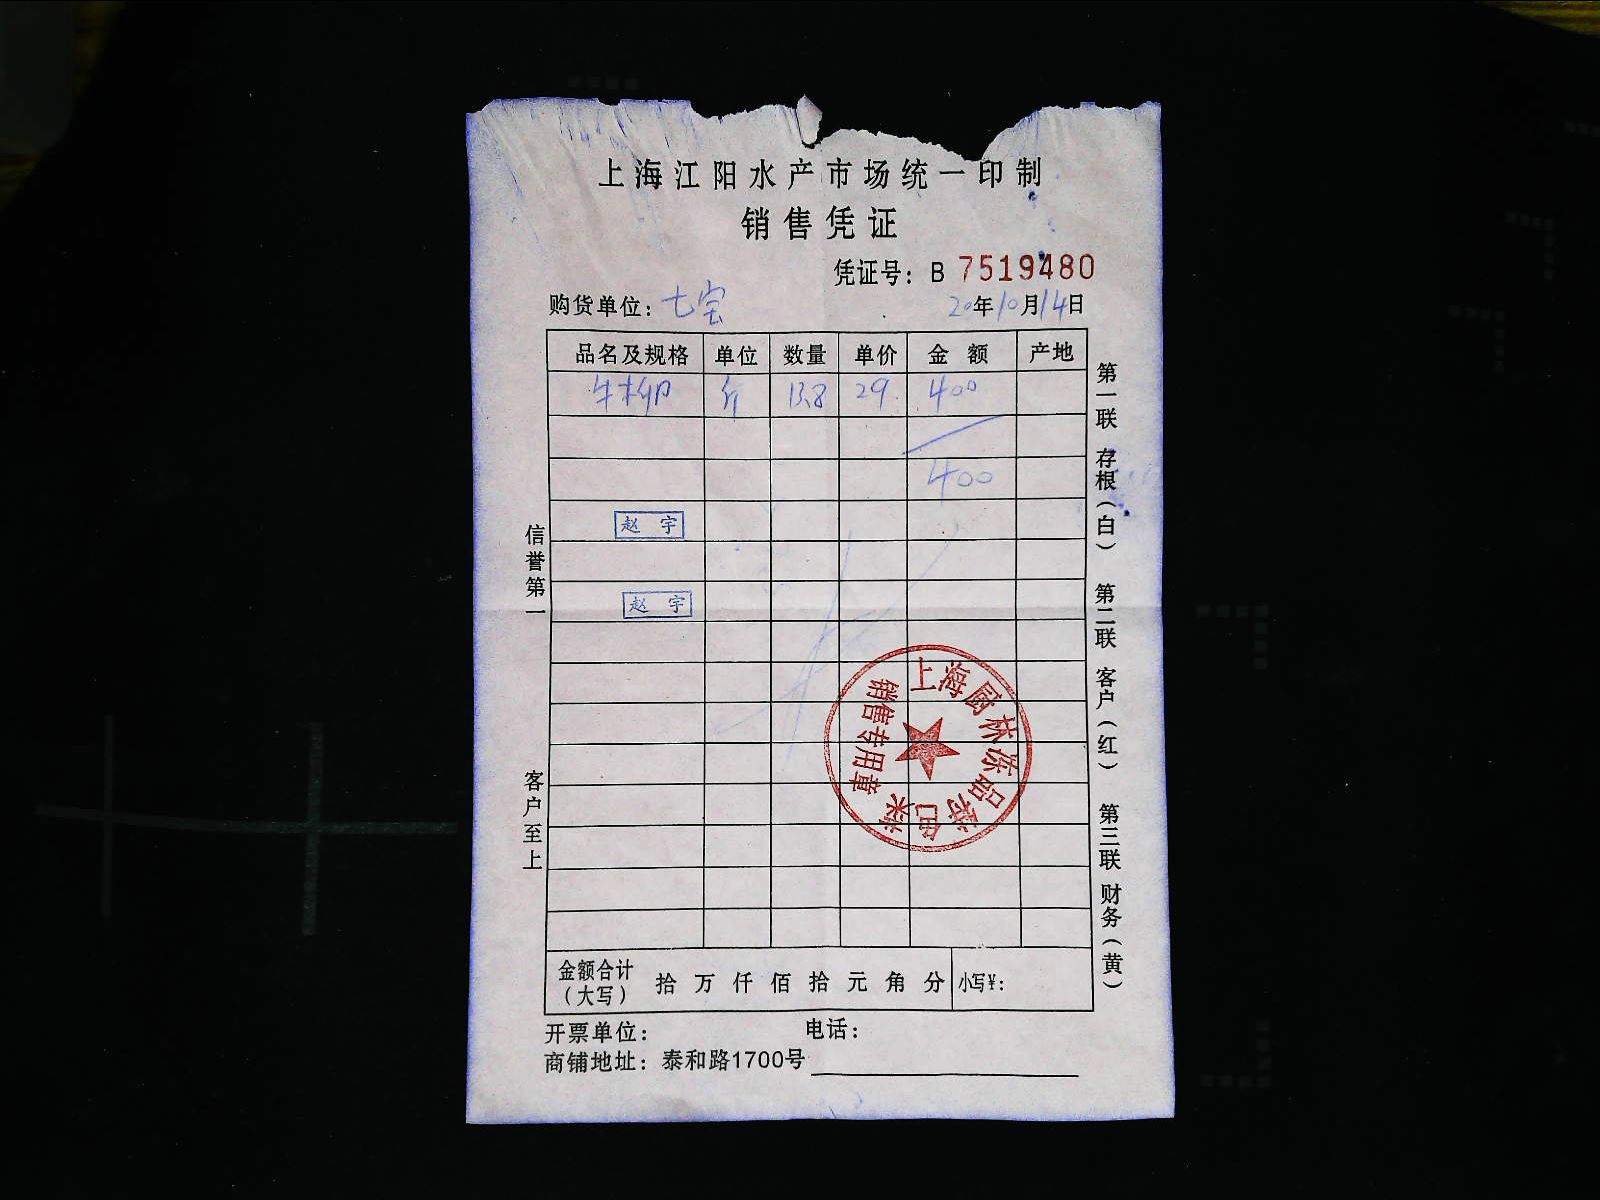 上海江阳水产市场统一印制
销售凭证
凭证号：B 7519480
购货单位：七宝
20年10月14日
品名及规格 单位 数量 单价 金额 产地
牛柳 斤 13.8 29 400
400
赵宇
赵宇
信誉第一
客户至上
第一联 存根（白） 第二联 客户（红） 第三联 财务（黄）
上海厨林冻品特色菜
销售专用章
金额合计（大写） 拾 万 仟 佰 拾 元 角 分 小写¥：
开票单位： 电话：
商铺地址：泰和路1700号